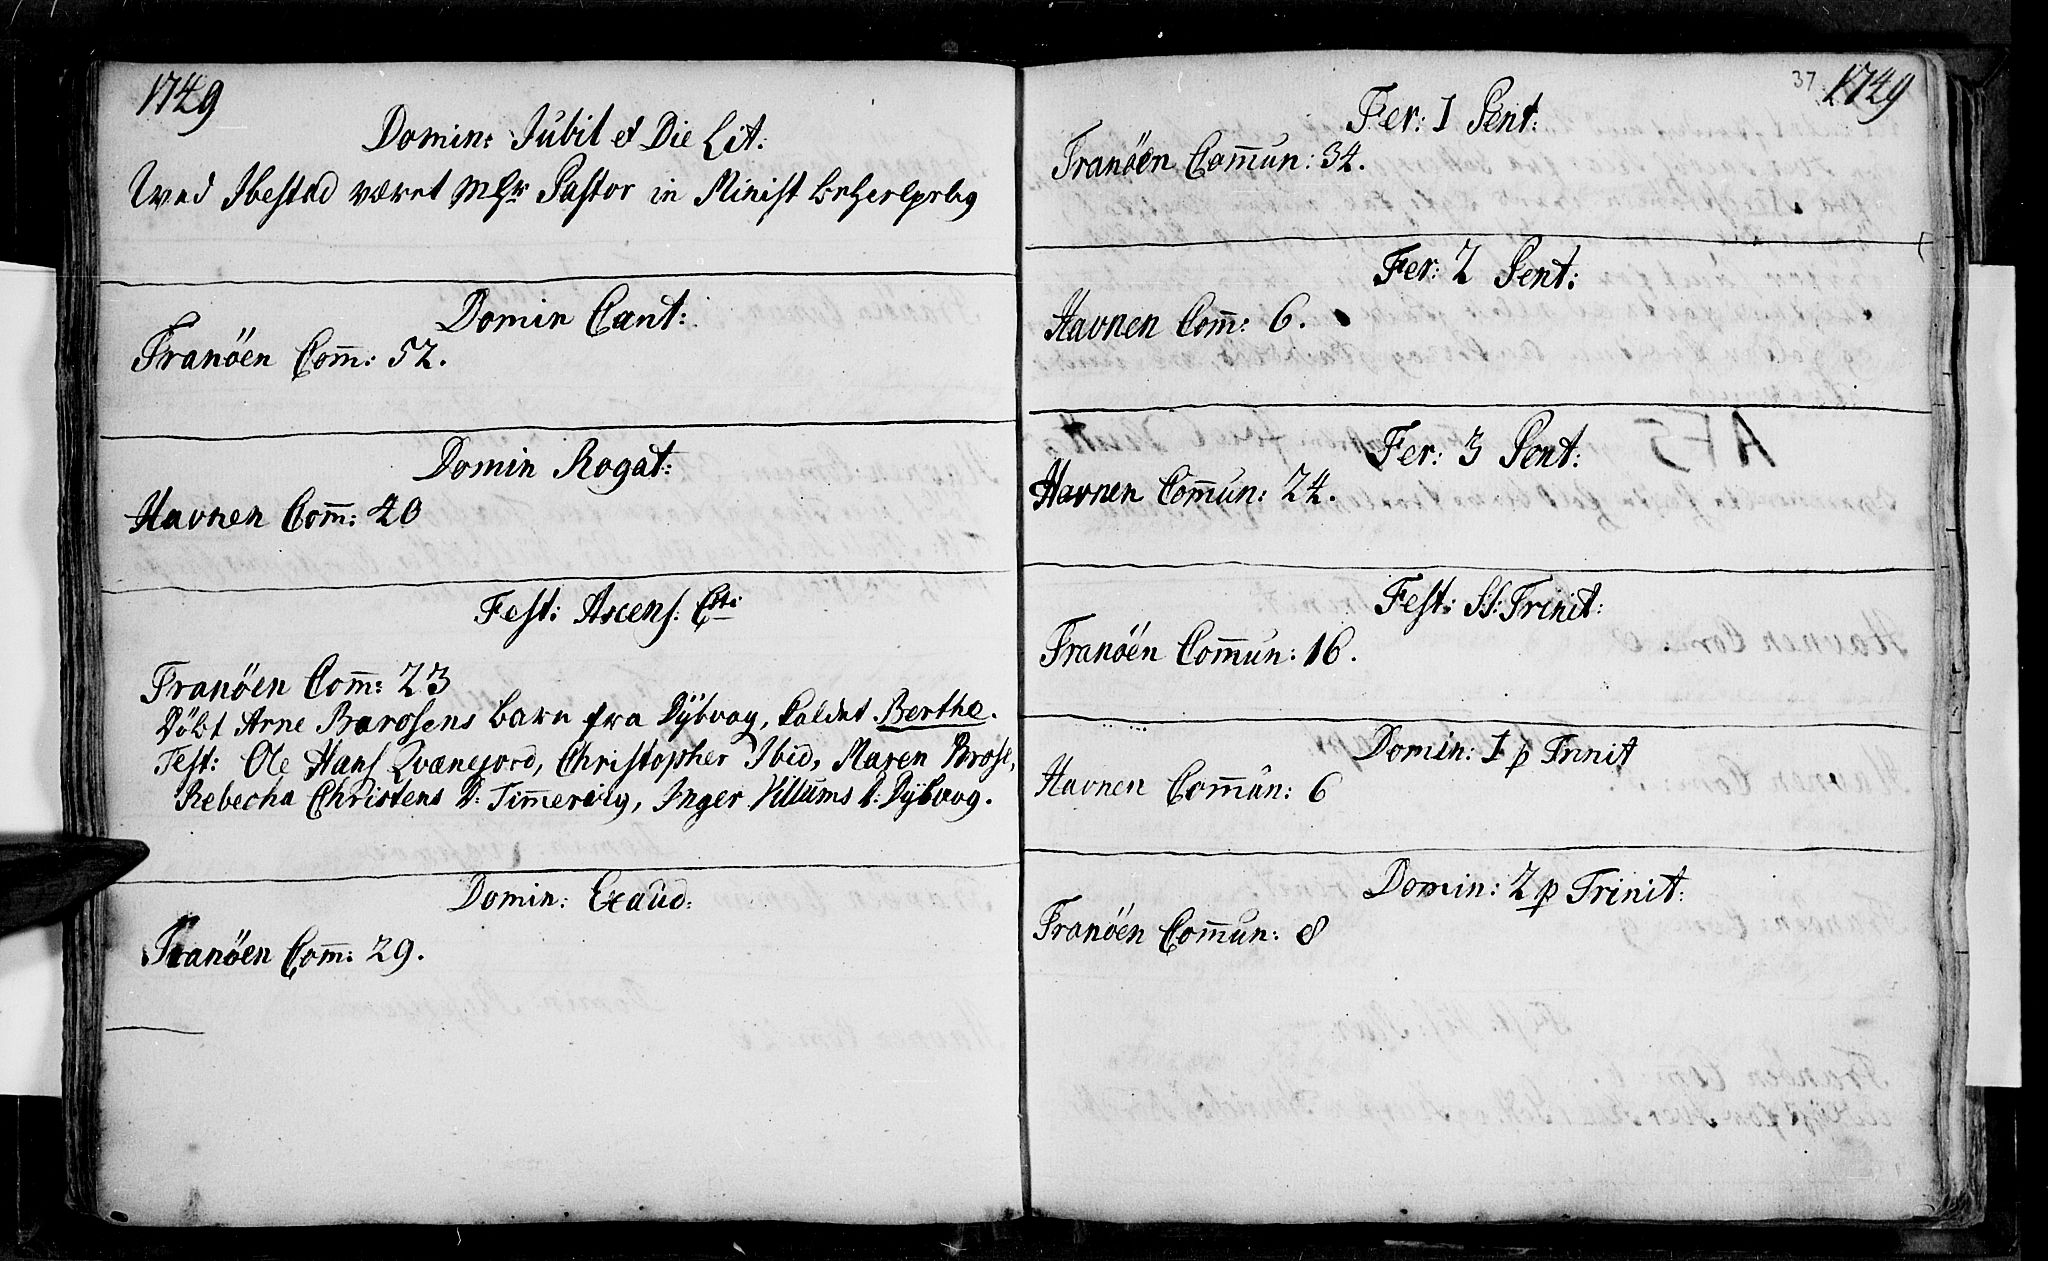 1749
Domin: Jubil et Die Lit:
Ved Ibestad været Mhr Pastor in Minist
Domin Cant:
Tranöen Com̅: 52.
Domin Rogat:
Havnen Com̅: 40
Fest: Ascens: Chti
Tranöen Com̅: 23
Döbt Arne Barosens barn fra Dÿbvog, kaldet Berthe.
Test: Ole Hans Qvænejord, Christopher Ibid, Maren Bros:,
Rebecha Christens D: Timmervig, Inger Villums D: Dÿbvog.
Domin: Exaud:
Tranöen Com̅: 29.
37 1749
Fer: 1 Pent:
Tranöen Com̅un: 34.
Fer: 2 Pent:
Havnen Com̅: 6.
Fer: 3 Pent:
Havnen Com̅un: 24.
Fest: SS: Trinit:
Tranöen Com̅un: 16.
Domin: 1 p Trinit
Havnen Com̅un: 6
Domin: 2 p Trinit:
Tranöen Com̅un: 8